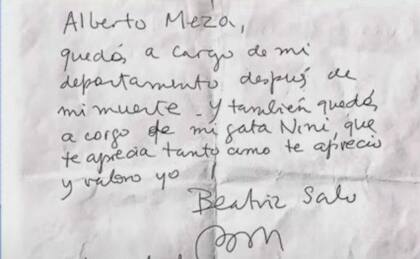 Alberto Meza,
quedás a cargo de mi
departamento después de
mi muerte - y también quedás
a cargo de mi gata Nini, que
te aprecia tanto como te aprecio
y valoro yo
Beatriz Salo